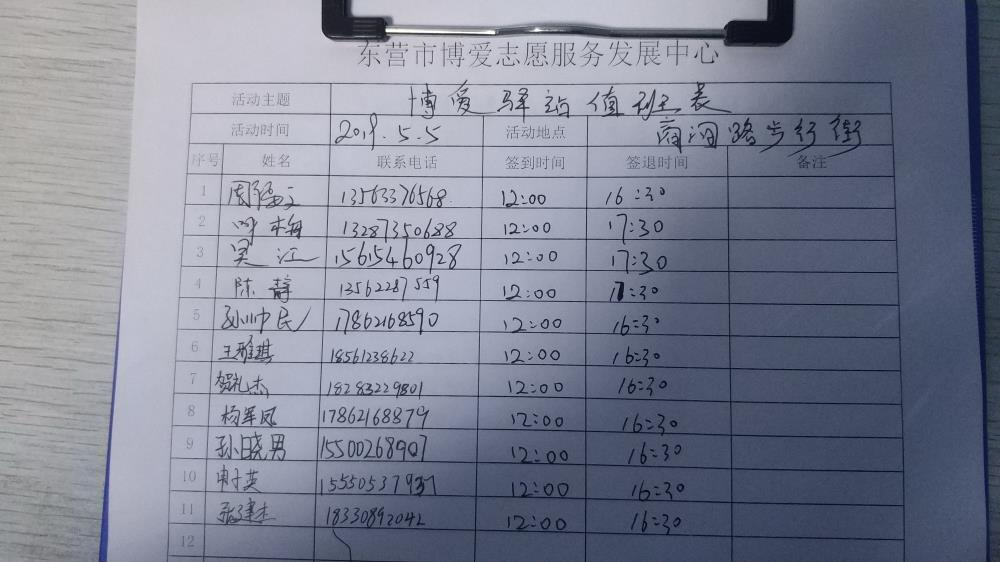 东营市博爱志愿服务发展中心
活动主题 博爱驿站值班表
活动时间 2019.5.5 活动地点 商河路步行街
序号 姓名 联系电话 签到时间 签退时间 备注
1 13563376568 12:00 16:30
2 叶梅 13287350688 12:00 17:30
3 吴江 15615460928 12:00 17:30
4 陈静 13562287559 12:00 17:30
5 孙帅民 17862168590 12:00 16:30
6 王雅琪 18561238622 12:00 16:30
7 贺礼杰 18283229801 12:00 16:30
8 杨军凤 17862168879 12:00 16:30
9 孙晓男 15500268907 12:00 16:30
10 12:00 16:30
11 张建杰 18330892042 12:00 16:30
12